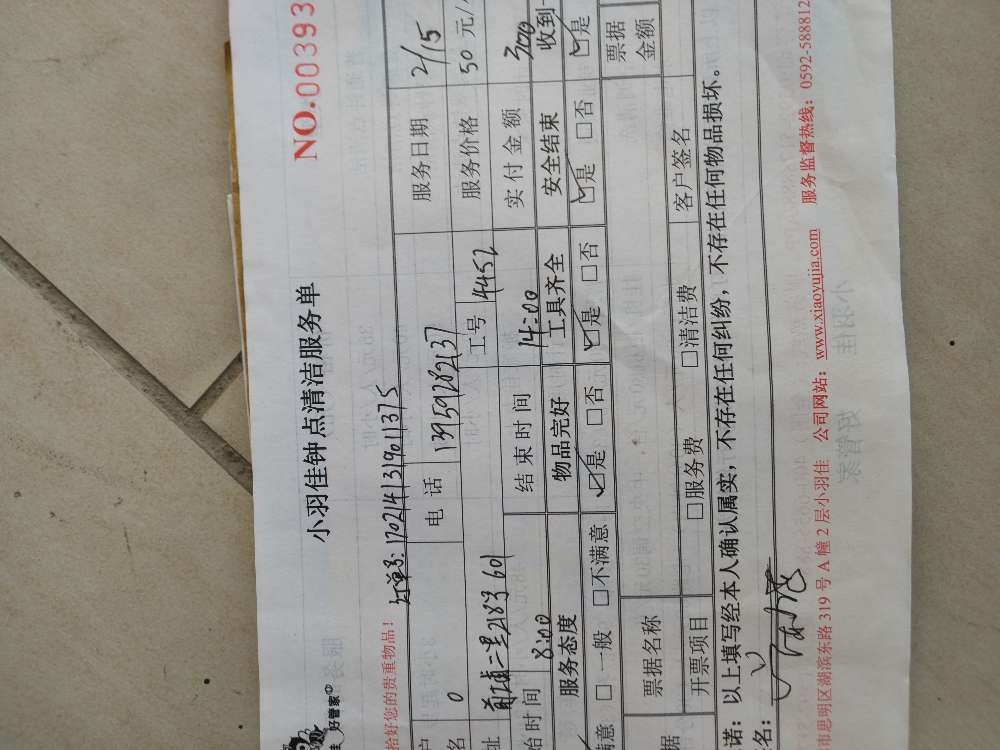 好管家
小羽佳钟点清洁服务单
NO.00393
拾好您的贵重物品!
订单号: 1702141319011375
户
名
电话
13959282137
服务日期
2/15
工号
4452
服务价格
50元/
址
前埔二里218号601
始时间
8:00
结束时间
14:00
实付金额
300
服务态度
物品完好
工具齐全
安全结束
收到
满意 □一般 □不满意
☑是 □否
☑是 □否
☑是 □否
☑是
票据名称
票据金额
据
开票项目
□服务费
□清洁费
客户签名
诺:以上填写经本人确认属实,不存在任何纠纷,不存在任何物品损坏。
名:
市思明区湖滨东路319号A幢2层小羽佳 公司网站:www.xiaoyujia.com 服务监督热线:0592-588812